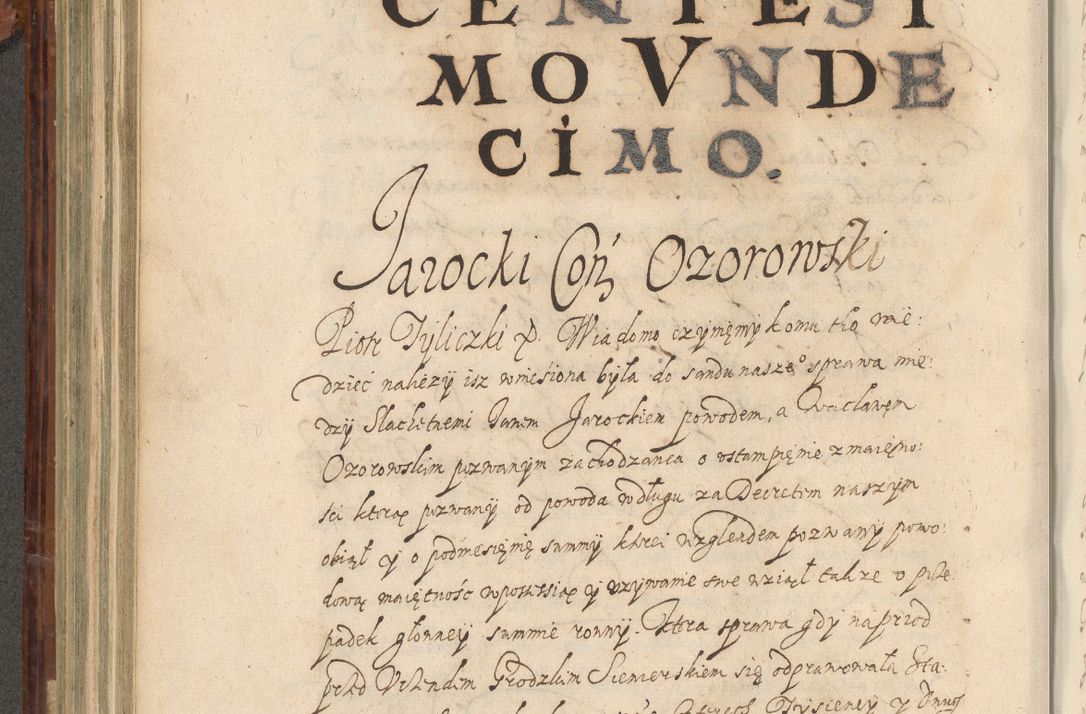 CENTESI
MO VNDE
CIMO.
Jarocki Coń Ozorowski
Piotr Tyliczki x. Wiadomo czynięmy komu tho wie:
dzieć nalieży isz wniesiona była do sandu naszeº sprawa mie:
dzy Slachetnemi Janem Jarockiem powodem, a Wacławem
Ozorowskim pozwanym zachodzanca o vstampięnie z maiętno:
sci którą pozwany od powoda w długu za Decretem naszym
obiął y o podniesięnię summy kthrei wzglendem pozwany powo:
dową maiętność w possessią y vzywanie swe wziął także o prze:
padek głowney summie rowny. Ktora sprawa gdy naprzod
przed Vrzendem Grodzkim Siewierskiem się odprawowała
Tysięncy y